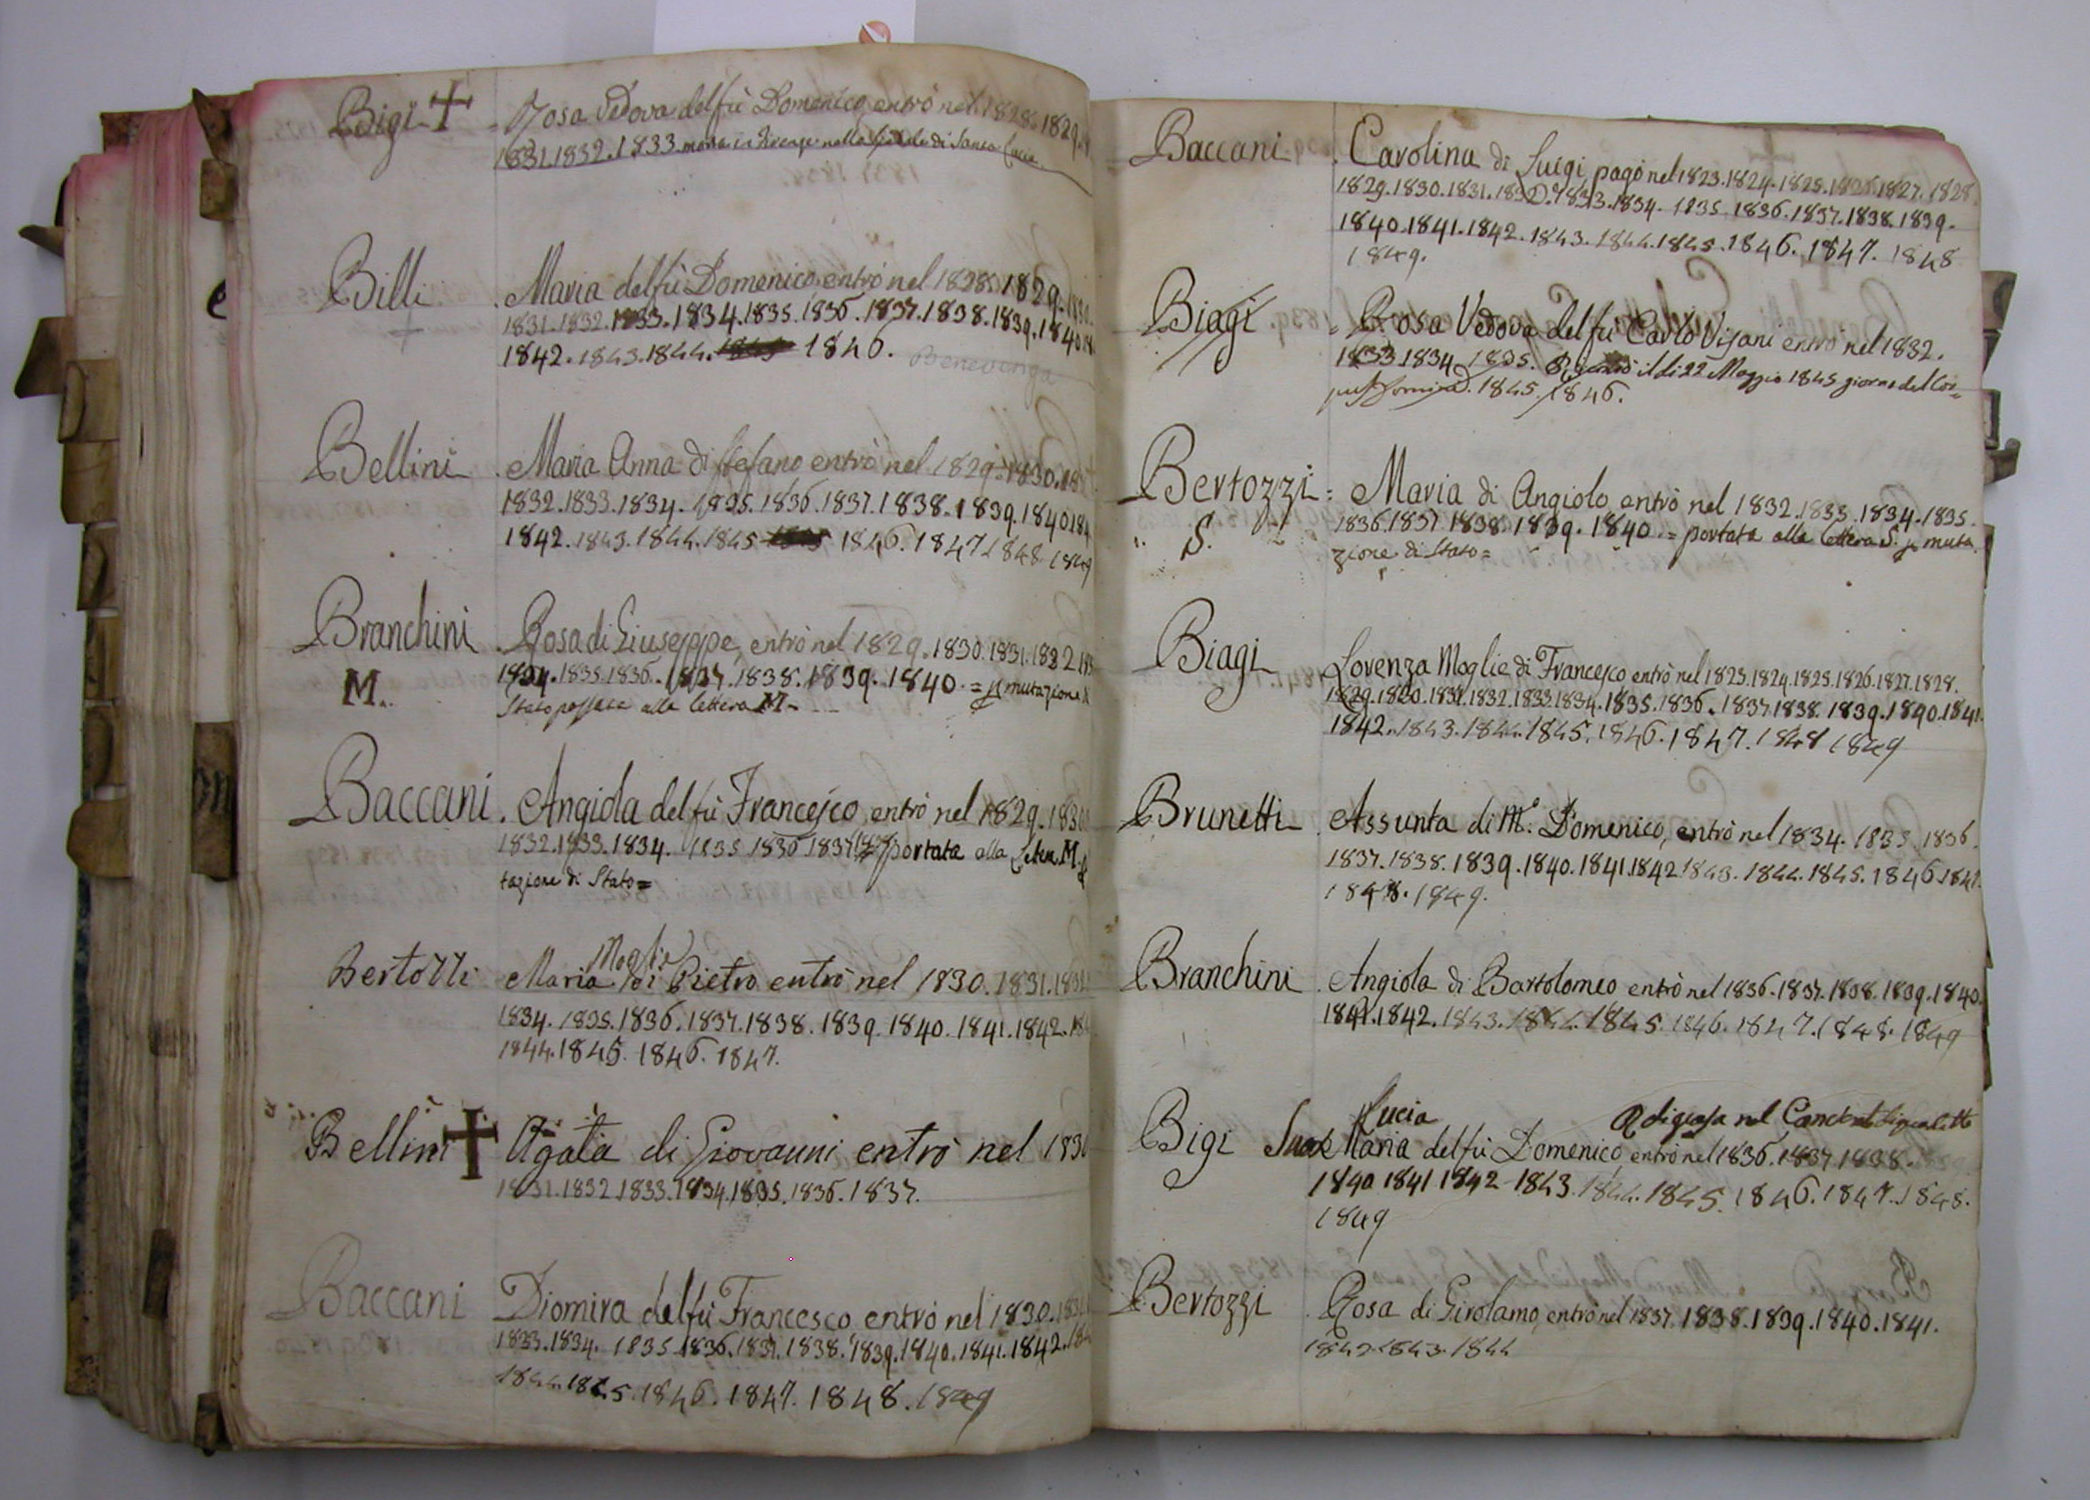 Bigi ✝ Rosa Vedova del fù Domenico entrò nel 1828. 1829.
1831. 1832. 1833. morta in Firenze nello Spedale di Santa Lucia
Billi . Maria del fù Domenico entrò nel 1828. 1829. 1830.
1831. 1832. 1833. 1834. 1835. 1836. 1837. 1838. 1839. 1840.
1842. 1843. 1844. 1845 1846.
Bellini . Maria Anna di Stefano entrò nel 1829. 1830.
1832. 1833. 1834. 1835. 1836. 1837. 1838. 1839. 1840.
1842. 1843. 1844. 1845 1845 1846. 1847. 1848. 1849
Branchini . Rosa di Giuseppe, entrò nel 1829. 1830. 1831. 1832
M. 1834. 1835. 1836. 1837. 1838. 1839. 1840. = p mutazione
Stato alla lettera M.
Baccani . Angiola del fù Francesco entrò nel 1829. 1830
1832. 1833. 1834. 1835. 1836. 1837 portata alla Lettera M.
tazione di Stato =
Moglie
Bertolli Maria di Pietro entrò nel 1830. 1831.
1834. 1835. 1836. 1837. 1838. 1839. 1840. 1841. 1842.
1844. 1845. 1846. 1847.
Bellini ✝ Agata di Giovanni entrò nel 1830
1831. 1832. 1833. 1834. 1835. 1836. 1837.
Baccani Diomira del fù Francesco entrò nel 1830.
1833. 1834. 1835. 1836. 1837. 1838. 1839. 1840. 1841. 1842.
1844. 1845. 1846. 1847. 1848. 1849
Baccani . Carolina di Luigi pagò nel 1823. 1824. 1825. 1826. 1827. 1828.
1829. 1830. 1831. 1832. 1833. 1834. 1835. 1836. 1837. 1838. 1839.
1840. 1841. 1842. 1843. 1844. 1845. 1846. 1847. 1848
1849.
Biagi = Rosa Vedova del fù Carlo Visani entrò nel 1832.
1833. 1834. 1835. il dì 22 Maggio 1845 giorno del Cor=
1845. 1846.
Bertozzi = Maria di Angiolo entrò nel 1832. 1833. 1834. 1835.
S. 1836. 1837. 1838. 1839. 1840. = portata alla lettera S. p muta
zione di Stato =
Biagi Lorenza Moglie di Francesco entrò nel 1823. 1824. 1825. 1826. 1827. 1828.
1829. 1830. 1831. 1832. 1833. 1834. 1835. 1836. 1837. 1838. 1839. 1840. 1841.
1842. 1843. 1844. 1845. 1846. 1847. 1848 1849
Brunetti . Assunta di M.º Domenico, entrò nel 1834. 1835. 1836.
1837. 1838. 1839. 1840. 1841. 1842. 1843. 1844. 1845. 1846. 1847.
1848. 1849.
Branchini . Angiola di Bartolomeo entrò nel 1836. 1837. 1838. 1839. 1840.
1841. 1842. 1843. 1844. 1845. 1846. 1847. 1848. 1849
Lucia nel
Bigi Suor Maria del fù Domenico entrò nel 1836. 1837. 1838.
1840 1841 1842 1843. 1844. 1845. 1846. 1847. 1848.
1849
Bertozzi . Rosa di Girolamo, entrò nel 1837. 1838. 1839. 1840. 1841.
1842. 1843. 1844